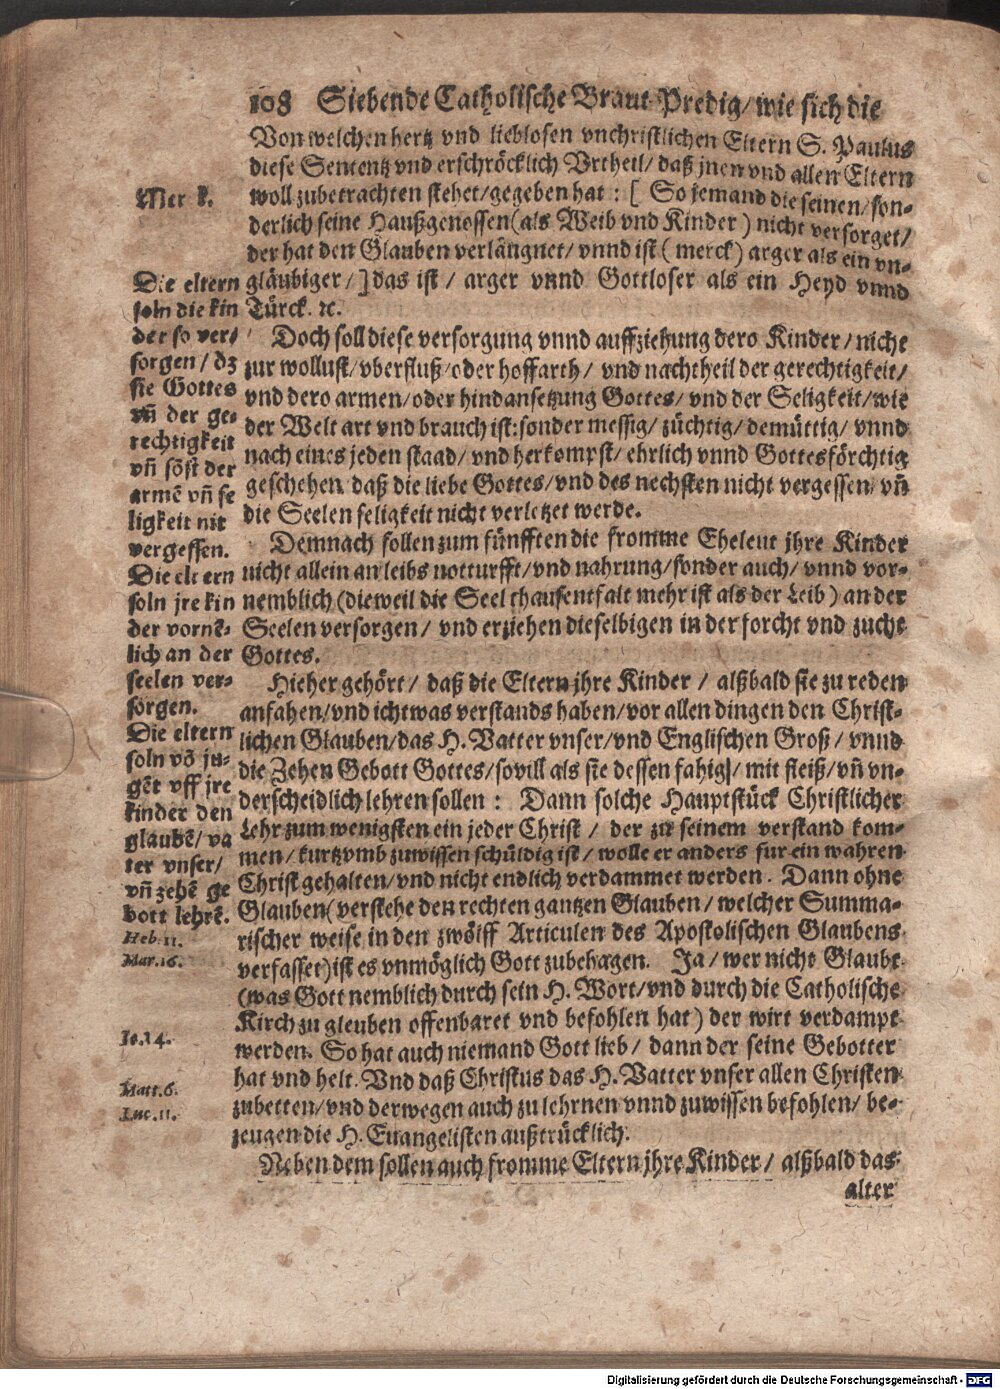 108 Siebende Catholische Braut-Predig/ wie sich die
Von welchen hertz vnd lieblosen vnchristlichen Eltern S. Paulus
diese Sententz vnd erschröcklich Vrtheil/ daß jnen vnd allen Eltern
woll zubetrachten stehet/ gegeben hat: [ So jemand die seinen/ son-
derlich seine Haußgenossen (als Weib vnd Kinder) nicht versorget/
der hat den Glauben verlängnet/ vnnd ist ( merck) arger als ein vn-
gläubiger/ ] das ist/ arger vnnd Gottloser als ein Heyd vnnd
Türck. ꝛc.
Doch soll diese versorgung vnnd auffziehung dero Kinder/ nicht
zur wollust/ vberfluß/ oder hoffarth/ vnd nachtheil der gerechtigkeit/
vnd dero armen/ oder hindansetzung Gottes/ vnd der Seligkeit/ wie
der Welt art vnd brauch ist: sonder messig/ züchtig/ demüttig/ vnnd
nach eines jeden staad/ vnd herkompst/ ehrlich vnnd Gottesförchtig
geschehen. daß die liebe Gottes/ vnd des nechsten nicht vergessen/ vn̄
die Seelen seligkeit nicht verletzet werde.
Demnach sollen zum fünfften die fromme Eheleut jhre Kinder
nicht allein an leibs notturfft/ vnd nahrung/ sonder auch/ vnnd vor-
nemblich (dieweil die Seel thausentfalt mehr ist als der Leib) an der
Seelen versorgen/ vnd erziehen dieselbigen in der forcht vnd zucht
Gottes.
Hieher gehört/ daß die Eltern jhre Kinder/ alßbald sie zu reden
anfahen/ vnd ichtwas verstands haben/ vor allen dingen den Christ-
lichen Glauben/ das H. Vatter vnser/ vnd Englischen Groß/ vnnd
die Zehen Gebott Gottes/ sovill als sie dessen fahig/ mit fleiß/ vn̄ vn-
derscheidlich lehren sollen: Dann solche Hauptstück Christlicher
Lehr zum wenigsten ein jeder Christ/ der zu seinem verstand kom-
men/ kurtzvmb zuwissen schüldig ist/ wolle er anders fur ein wahren
Christ gehalten/ vnd nicht endlich verdammet werden. Dann ohne
Glauben (verstehe den rechten gantzen Glauben/ welcher Summa-
rischer weise in den zwölff Articulen des Apostolischen Glaubens
verfasset) ist es vnmöglich Gott zubehagen. Ja/ wer nicht Glaubt
(was Gott nemblich durch sein H. Wort/ vnd durch die Catholische
Kirch zu gleuben offenbaret vnd befohlen hat) der wirt verdampt
werden. So hat auch niemand Gott lieb/ dann der seine Gebotter
hat vnd helt. Vnd daß Christus das H. Vatter vnser allen Christen
zubetten/ vnd derwegen auch zu lehrnen vnnd zuwissen befohlen/ be-
zeugen die H. Euangelisten außtrücklich.
Neben dem sollen auch fromme Eltern jhre Kinder/ alßbald das
alter
Mer k.
Die eltern
soln die kin
der so ver-
sorgen/ dz
sie Gottes
vn̄ der ge-
rechtigkeit
vn̄ sōst der
armē vn̄ se
ligkeit nit
vergessen.
Die eltern
soln jre kin
der vornē-
lich an der
seelen ver-
sorgen.
Die eltern
soln vō ju-
gēt vff jre
kinder den
glaubē/ va
ter vnser/
vn̄ zehē ge
bott lehrē.
Heb. 11.
Mar. 16.
Io. 14.
Matt. 6.
Luc. 11.
Digitalisierung gefördert durch die Deutsche Forschungsgemeinschaft - DFG